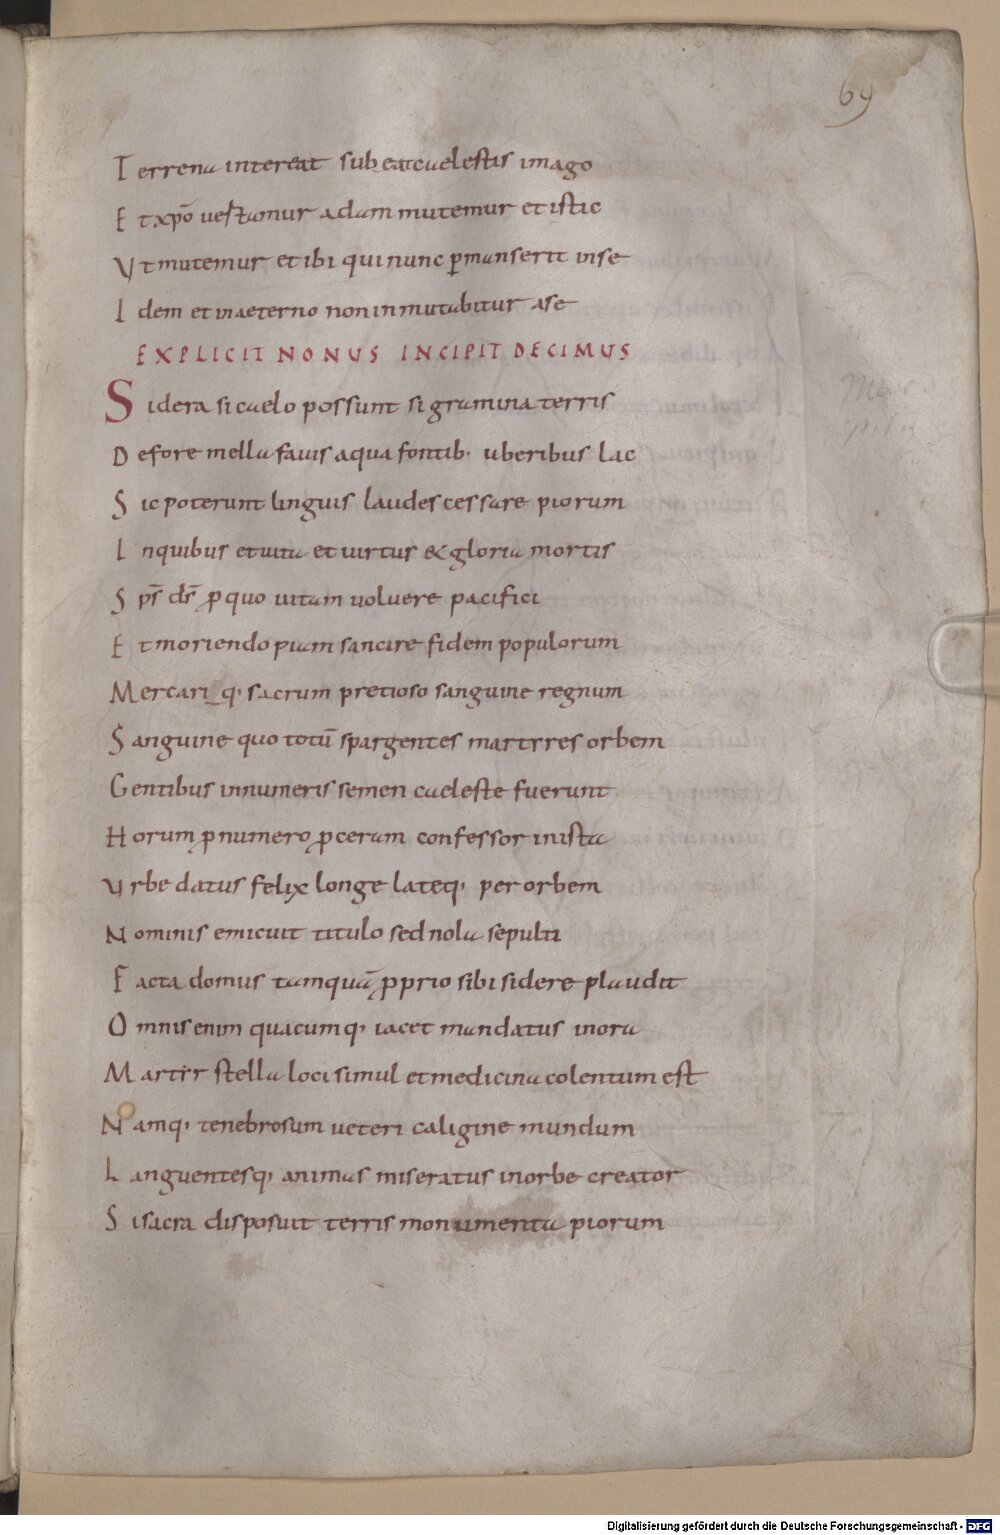 69
Terrena intereat subeat caelestis imago
Et xp̄o uestamur adam mutemur et istic
Vt mutemur et ibi qui nunc ꝑmanserit in se
Idem et in aeterno non inmutabitur a se
EXPLICIT NONUS INCIPIT DECIMUS
Sidera si caelo possunt si gramina terris
Defore mella fauis aqua fontib· uberibus lac
Sic poterunt linguis laudes cessare piorum
In quibus et uita et uirtus & gloria mortis
Sps̄ ds̄ ꝓ quo uitam uoluere pacifici
Et moriendo piam sancire fidem populorum
Mercariq· sacrum pretioso sanguine regnum
Sanguine quo totū spargentes martyres orbem
Gentibus innumeris semen caeleste fuerunt
Horum ꝓ numero ꝓcerum confessor in ista
Vrbe datus felix longe lateq· per orbem
Nominis emicuit titulo sed nola sepulti
Facta domus tamquā ꝓprio sibi sidere plaudit
Omnis enim quacumq· iacet mandatus in ora
Martyr stella loci simul et medicina colentum est
Namq· tenebrosum ueteri caligine mundum
Languentesq· animas miseratus in orbe creator
Si sacra disposuit terris monumenta piorum
Digitalisierung gefördert durch die Deutsche Forschungsgemeinschaft - DFG